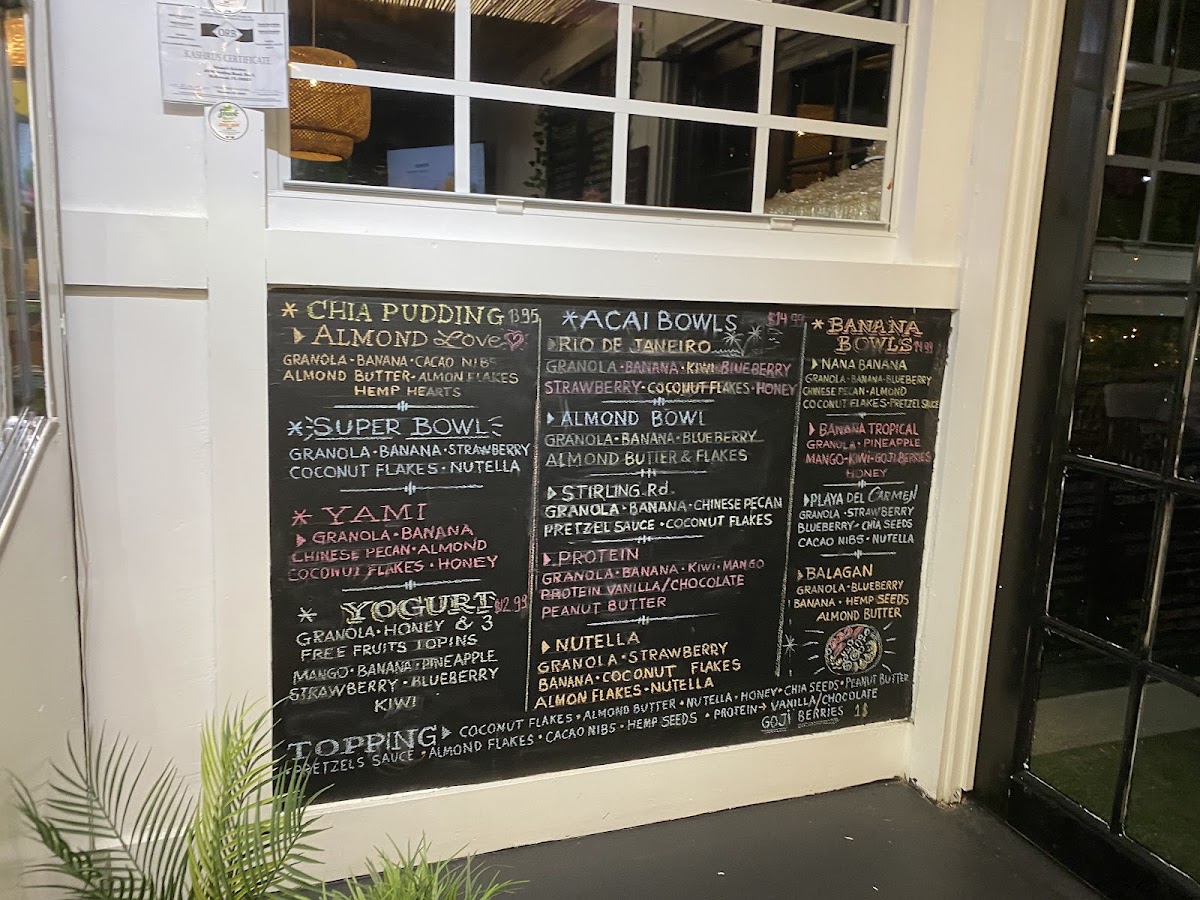 ORB
KASHRUS CERTIFICATE
* CHIA PUDDING 13.95
ALMOND Love
GRANOLA • BANANA • CACAO NIBS
ALMOND BUTTER • ALMON FLAKES
HEMP HEARTS
* SUPER BOWL
GRANOLA • BANANA • STRAWBERRY
COCONUT FLAKES • NUTELLA
* YAMI
GRANOLA • BANANA
CHINESE PECAN • ALMOND
COCONUT FLAKES • HONEY
* YOGURT $12.99
GRANOLA • HONEY & 3
FREE FRUITS TOPINS
MANGO • BANANA • PINEAPPLE
STRAWBERRY • BLUEBERRY
KIWI
* ACAI BOWLS $14.99
RIO DE JANEIRO
GRANOLA • BANANA • KIWI • BLUEBERRY
STRAWBERRY • COCONUT FLAKES • HONEY
ALMOND BOWL
GRANOLA • BANANA • BLUEBERRY
ALMOND BUTTER & FLAKES
STIRLING Rd
GRANOLA • BANANA • CHINESE PECAN
PRETZEL SAUCE • COCONUT FLAKES
PROTEIN
GRANOLA • BANANA • KIWI • MANGO
PROTEIN VANILLA/CHOCOLATE
PEANUT BUTTER
NUTELLA
GRANOLA • STRAWBERRY
BANANA • COCONUT FLAKES
ALMON FLAKES • NUTELLA
* BANANA
BOWLS 14.99
NANA BANANA
GRANOLA • BANANA • BLUEBERRY
CHINESE PECAN • ALMOND
COCONUT FLAKES • PRETZEL SAUCE
BANANA TROPICAL
GRANOLA • PINEAPPLE
MANGO • KIWI • GOJI BERRIES
HONEY
PLAYA DEL CARMEN
GRANOLA • STRAWBERRY
BLUEBERRY • CHIA SEEDS
CACAO NIBS • NUTELLA
BALAGAN
GRANOLA • BLUEBERRY
BANANA • HEMP SEEDS
ALMOND BUTTER
TOPPING COCONUT FLAKES • ALMOND BUTTER • NUTELLA • HONEY • CHIA SEEDS • PEANUT BUTTER
PRETZELS SAUCE • ALMOND FLAKES • CACAO NIBS • HEMP SEEDS • PROTEIN → VANILLA/CHOCOLATE
GOJI BERRIES 1$